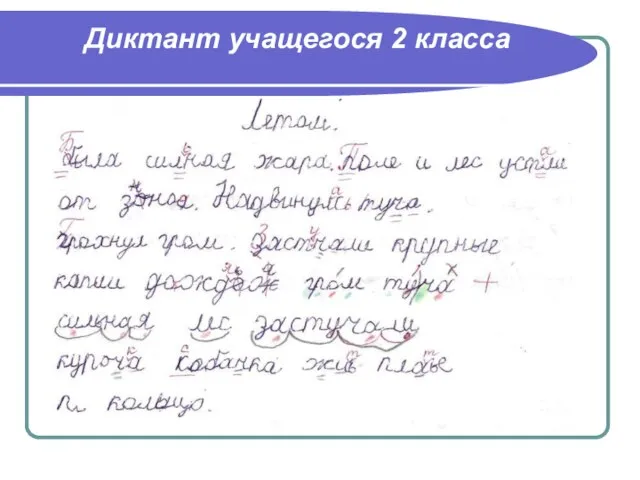 Диктант учащегося 2 класса
Летом.
была силная жара. Поле и лес устли
от зноя. Надвинулсь туча.
грохнул гром. Застчали крупные
капли дождж гром туча +
сильная лес застучали
куроча кабанка жив плавье
п кольцо.